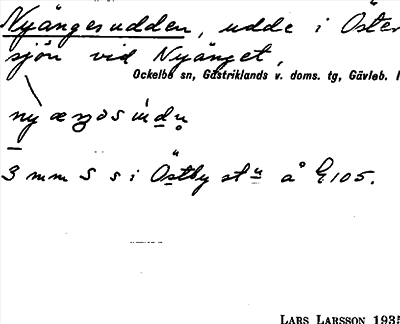 Nyängesudden, udde i Öster
sjön vid Nyänget,
Ockelbo sn, Gästriklands v. doms. tg, Gävleb. l
3 mm S s i Östby st å E105.
LARS LARSSON 1935